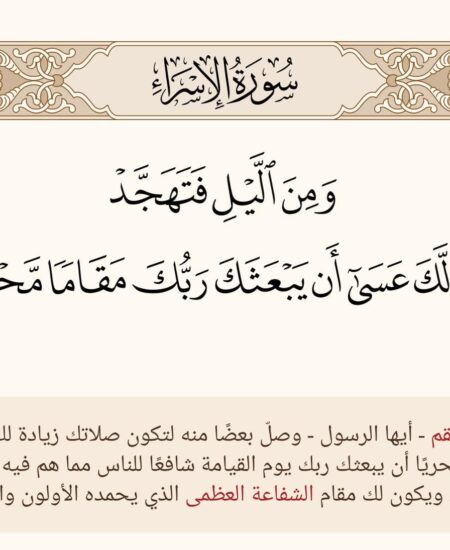 سُورَةُ الإِسْرَاءِ
وَمِنَ ٱلَّيۡلِ فَتَهَجَّدۡ
لَّكَ عَسَىٰٓ أَن يَبۡعَثَكَ رَبُّكَ مَقَامٗا
- أيها الرسول - وصلّ بعضًا منه لتكون صلاتك زيادة
أن يبعثك ربك يوم القيامة شافعًا للناس مما هم فيه
ويكون لك مقام الشفاعة العظمى الذي يحمده الأولون